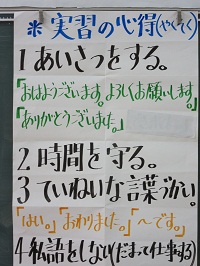 ※実習の心得(やくそく)
1あいさつをする。
「おはようございます。よろしくお願いします。」
「ありがとうございました。」
2時間を守る。
3ていねいな言葉づかい。
「はい。」「おわりました。」「～です。」
4私語をしない(だまって仕事する)